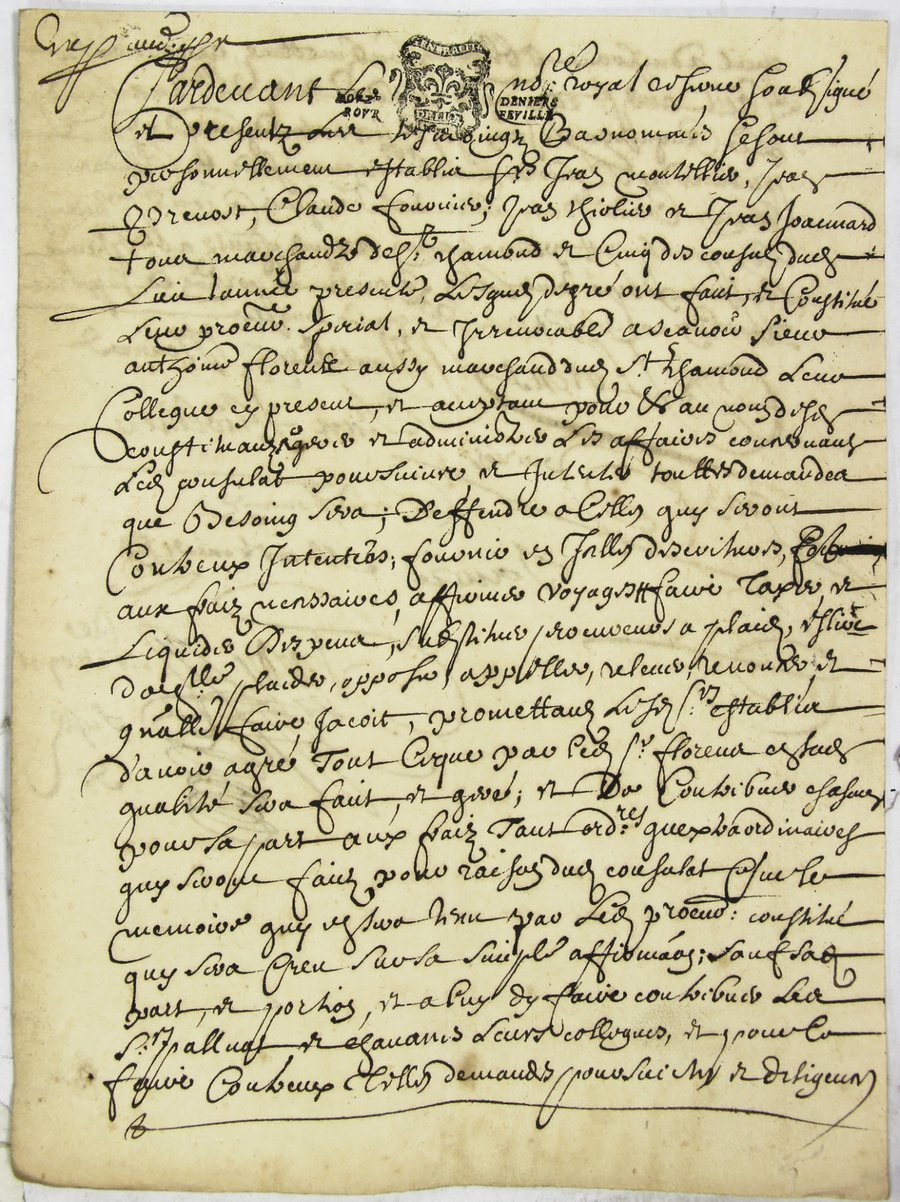 GENERALITE
DE LYON
Pardevant Le no.re royal
DENIERS
FEVILLE
et presentz
personnellement establis Srs Jean montellier, Jean
Prevost, Claude fournier, Jean thiolier et Jean Joannard
tous marchandz de St chamond et Cinq des consulz dud
Lieu l'année presente, Lesquelz de gré ont fait, et Constitué
Leur proceur. special, et Irrevocable ascavoir Sieur
anthoine florent aussy marchand dud St. chamond Leur
Collegue cy present, et acceptant pour et au nom desd
constituantz gerer et administrer Les affaires concernant
Led consulat poursuivre, et Intenter touttes demandes
que Besoing sera; Deffendre a celles quy seront
Contreux Intentées; fournir en Icelles d'escritures,
aux fraiz necessaires, affirmer voyages faire Taxer, et
Liquider Despens, substituer procureurs a plaid, eslire
domlle plaider, opposer, appeller, relever, renoncer et
gnallt faire Jacoit, promettant Lesd Srs establis
d'avoir agreé Tout Ceque par led Sr. florent esd
qualité sera fait, et geré; et De Contribuer chascun
pour sa part aux fraiz Tant ordres quextraordinaires
quy seront faitz pour raison dud consulat
memoire quy en sera tenu par Led proceur: constitué
quy sera Creu sur sa simple affirmaon; sauf sad
part, et portion, et a luy d'y faire contribuer Les
Srs palluat et chavanis Leurs collegues, et pour le
faire Contreux telles demandes poursuittes et diligences